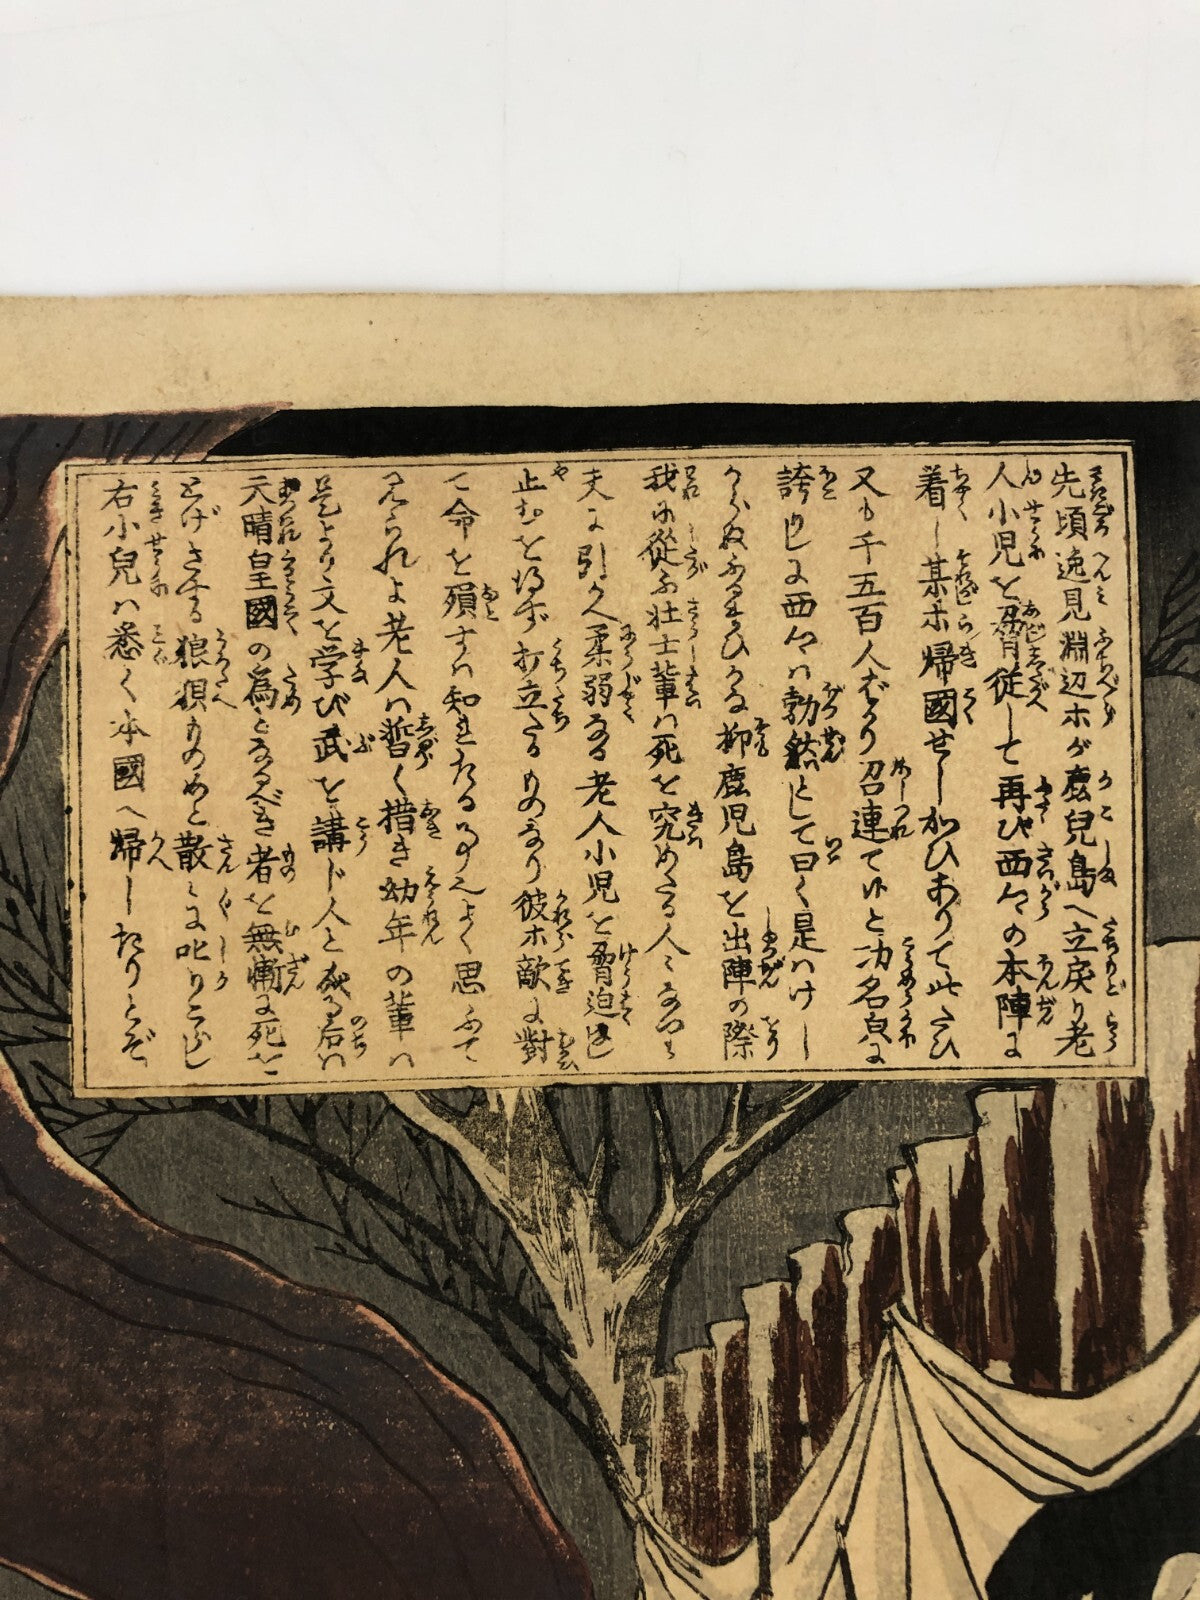 先頃逸見淵辺ホが鹿兒島へ立戻り老
人小児を脅従して再び西々の本陣に
着し某ホ帰國せしかひありて此たひ
又も千五百人ばかり召連て候と功名自に
誇りしに西々は勃然として曰く是はけし
からぬふるまひかな抑鹿児島を出陣の際
我に從ふ壮士輩は死を究めたる人々なれ
夫に引かへ柔弱なる老人小児を脅迫し
止むを得ず打立たるものなり彼ホ敵に對
て命を殞すは知れたる事也よく思ふて
見られよ老人は暫く措き幼年の輩は
是より文を学び武を講じ人と成る后は
天晴皇國の為となるべき者を無慚に死を
とげさする狼狽ものめと散々に叱りこらし
右小兒は悉く本國へ帰したりとぞ